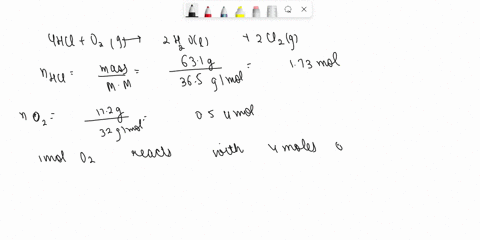 4HCl + O₂ (g) → 2H₂O(l) + 2Cl₂(g)
nHCl = mass / M.M = 63.1g / 36.5 g/mol = 1.73 mol
nO₂ = 17.2g / 32 g/mol = 0.54 mol
1mol O₂ reacts with 4 moles o